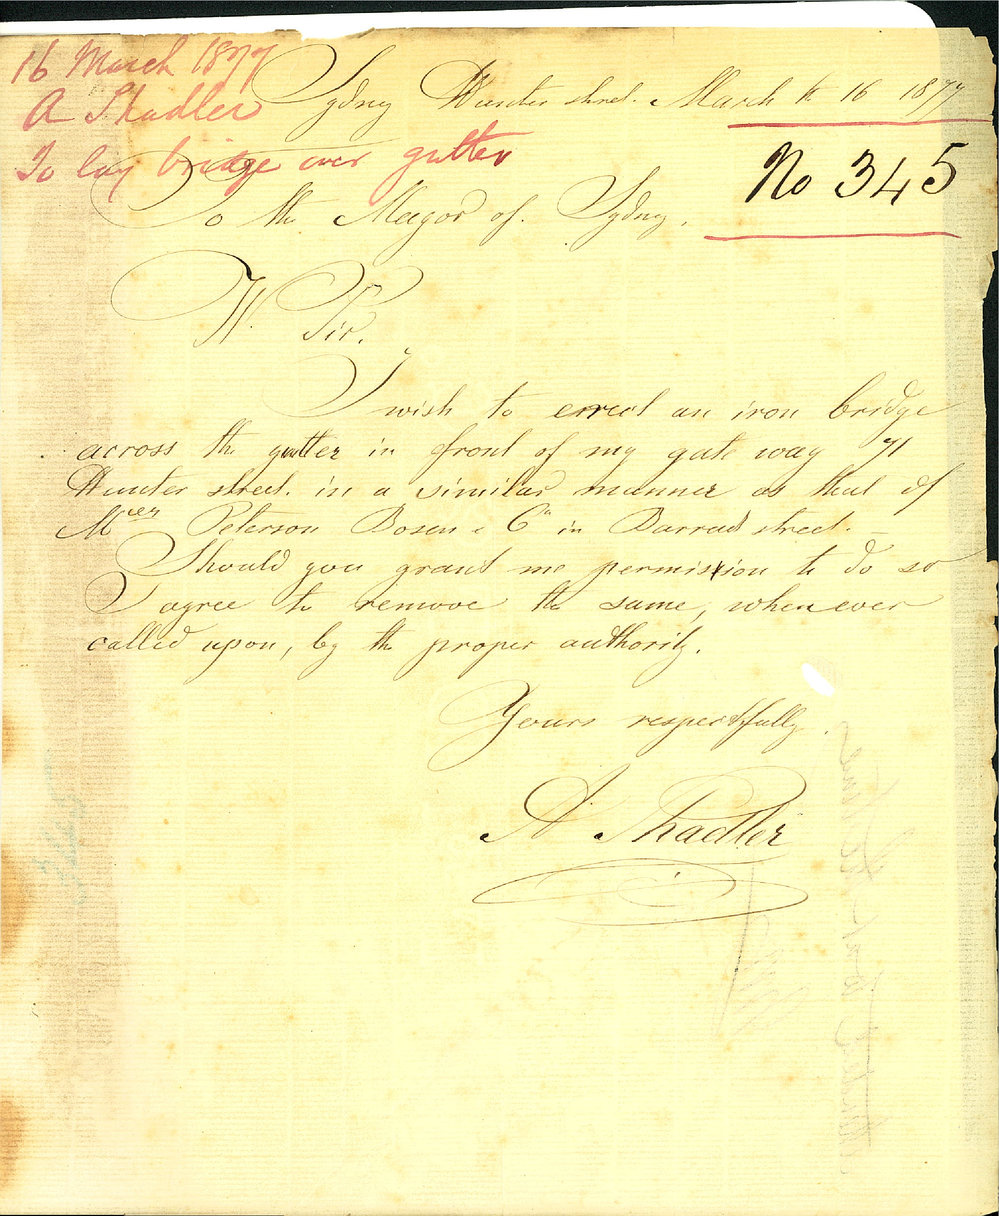 16 March 1877
A Shadler
To lay bridge over gutter
Sydney Hunter street. March th 16 1877
No 345
To the Mayor of Sydney.
W. Sir.
I wish to errect an iron bridge
across the gutter in front of my gate way 71
Hunter street. in a similar manner as that of
Mrs Peterson Bosen & Co in Barrack street.
Should you grant me permission to do so
I agree to remove the same, when ever
called upon, by the proper authority.
Yours respectfully.
A. Shadler